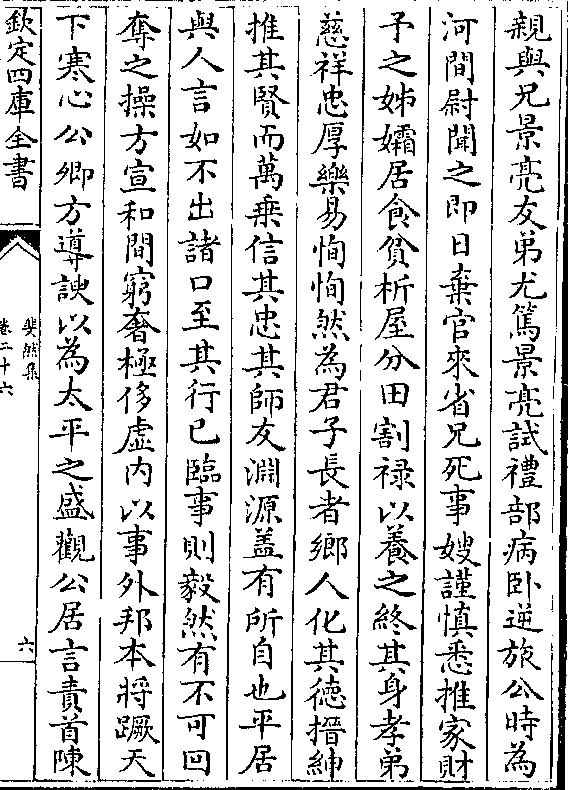 親與兄景亮友弟尤篤景亮試禮部病卧逆旅公時為
河間尉聞之即日棄官來省兄死事嫂謹慎悉推家財
予之姊孀居食貧析屋分田割祿以養之終其身孝弟
慈祥忠厚樂易恂恂然為君子長者鄉人化其徳搢紳
推其賢而萬乗信其忠其師友淵源盖有所自也平居
與人言如不出諸口至其行已臨事則毅然有不可回
奪之操方宣和間窮奢極侈虚内以事外邦本將蹶天
下寒心公卿方導諛以為太平之盛觀公居言責首陳
欽定四庫全書
斐然集
卷二十六
六